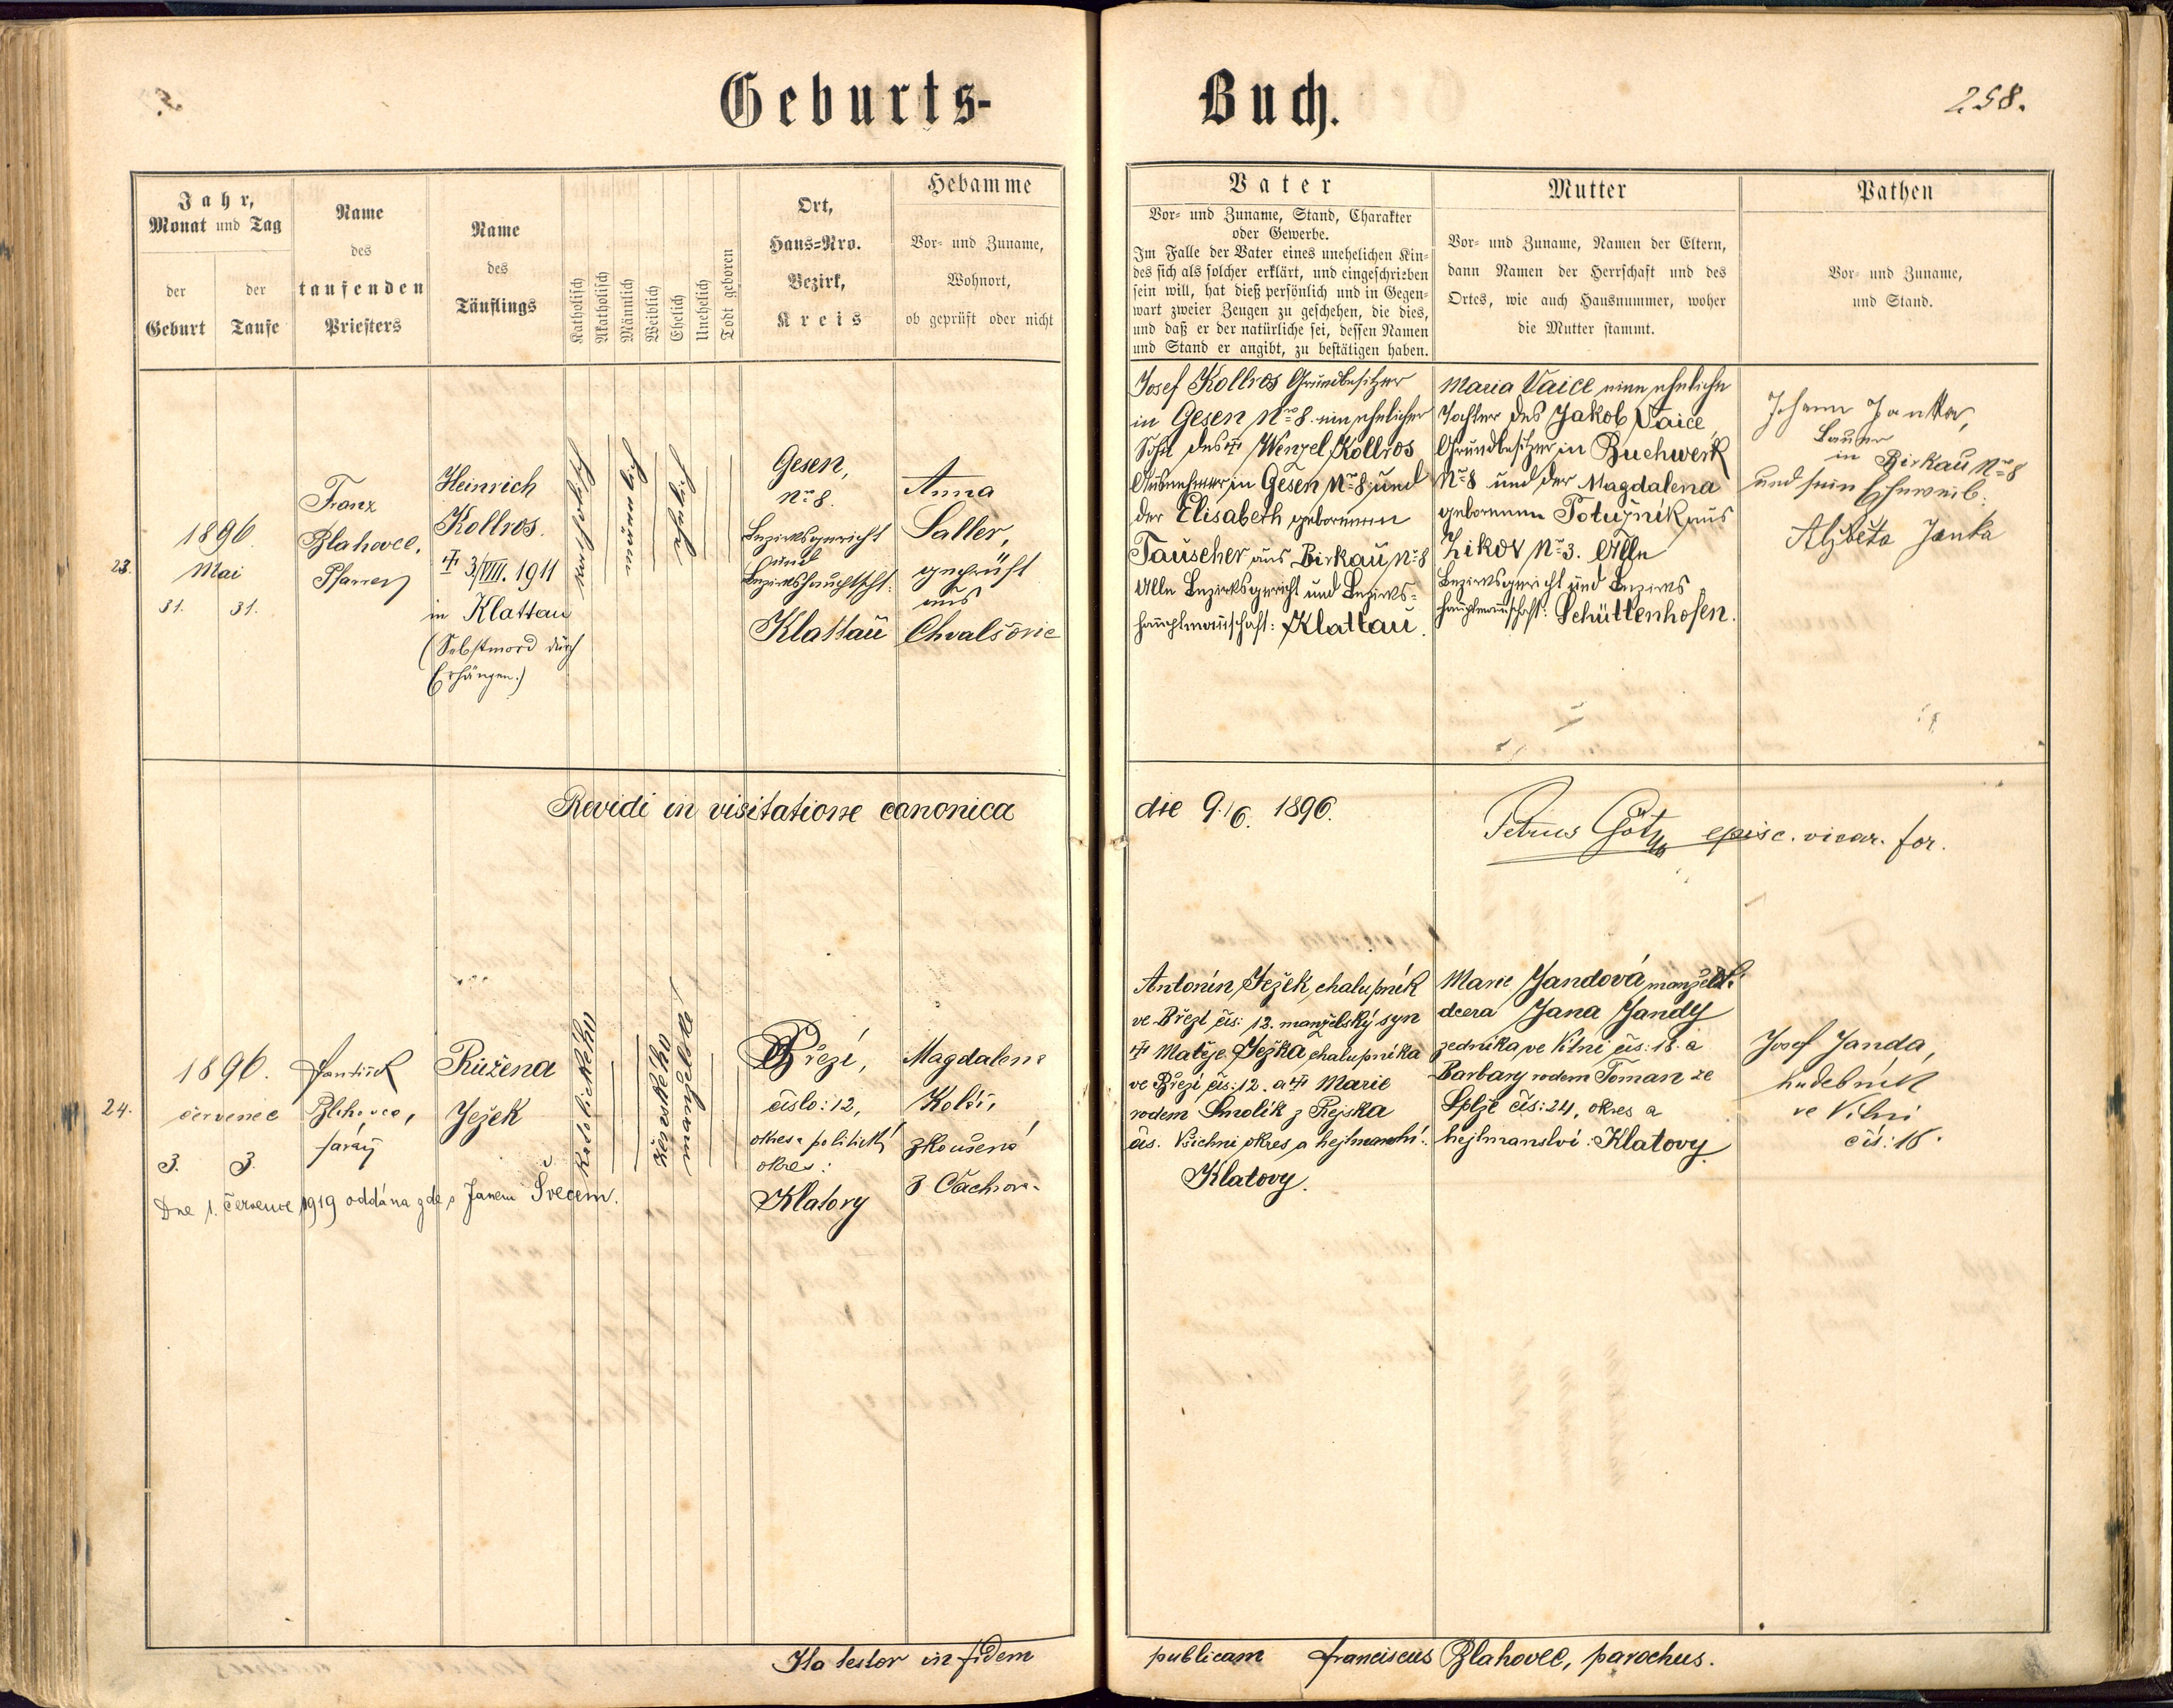 Geburts-
Buch.
258.
Jahr,
Monat und Tag
der
Geburt
der
Taufe
Name
des
taufenden
Priesters
Name
des
Täuflings
Katholisch
Akatholisch
Männlich
Weiblich
Ehelich
Unehelich
Todt geboren
Ort,
Haus-Nro.
Bezirk,
Kreis
Hebamme
Vor- und Zuname,
Wohnort,
ob geprüft oder nicht
Vater
Vor- und Zuname, Stand, Charakter
oder Gewerbe.
Im Falle der Vater eines unehelichen Kin-
des sich als solcher erklärt, und eingeschrieben
sein will, hat dieß persönlich und in Gegen-
wart zweier Zeugen zu geschehen, die dies,
und daß er der natürliche sei, dessen Namen
und Stand er angibt, zu bestätigen haben.
Mutter
Vor- und Zuname, Namen der Eltern,
dann Namen der Herrschaft und des
Ortes, wie auch Hausnummer, woher
die Mutter stammt.
Pathen
Vor- und Zuname,
und Stand.
23.
1896.
Mai
31.
31.
Franz
Blahovec,
Pfarrer
Heinrich
Kollros.
✝ 3/VIII. 1911
in Klattau
(Selbstmord durch
Erhängen.)
katholisch
ehelich
Gesen,
Nro 8.
Bezirksgericht
und
Bezirkshauptscht:
Klattau
Anna
Saller,
geprüft
aus
Chvalšovic
Josef Kollros Grundbesitzer
in Gesen Nro 8. ein ehelicher
Sohn des ✝ Wenzel Kollros
Ausnehmer in Gesen Nro 8 und
der Elisabeth geborenen
Tauscher aus Birkau Nro 8
Alle Bezirksgericht und Bezirks-
hauptmannschaft: Klattau.
Maria Vaice eine eheliche
Tochter des Jakob Vaice,
Grundbesitzer in Buchwerk
Nro 8 und der Magdalena
geborenen Potužník aus
Žikov Nro 3. Alle
Bezirksgericht und Bezirks
hauptmannschaft: Schüttenhofen.
Johann Janka,
Bauer
in Birkau Nro 8
und sein Eheweib.
Alžběta Janka
Revidi in visitatione canonica
die 9./6. 1896.
Petrus Götz episc. vicar. for.
24.
1896.
červenec
3.
3.
František
Blahovec,
farář
Růžena
Ježek
katolického
ženského
manželské
Březí,
číslo: 12,
okres a politický
okres:
Klatovy
Magdalena
zkoušená
z Čachrova
Dne 1. července 1919 oddána zde s Janem Švecem.
Antonín Ježek, chalupník
ve Březí čís: 12. manželský syn
✝ Matěje Ježka, chalupníka
ve Březí čís: 12. a ✝ Marie
rodem Smolík z Rejska
čís. Všichni okres a hejtmanství:
Klatovy.
Marie Jandová manžel.
dcera Jana Jandy
zedníka ve Vílní čís: 18. a
Barbary rodem Toman ze
Splže čís: 24, okres a
hejtmanství: Klatovy.
Josef Janda,
hudebník
ve Vílní
čís: 18.
Ita testor in fidem
publicam Franciscus Blahovec, parochus.